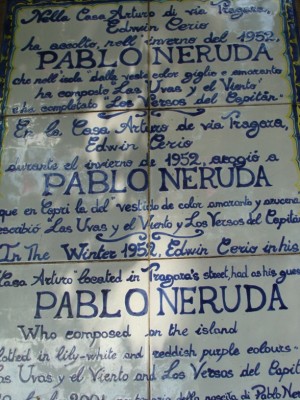 Nella Casa Arturo di via Tragara,
Edwin Cerio
ha accolto, nell'inverno del 1952,
PABLO NERUDA
che nell'isola "dalla veste color giglio e amaranto"
ha composto "Las Uvas y el Viento"
e ha completato "Los Versos del Capitán".
En la Casa Arturo de via Tragara,
Edwin Cerio
durante el invierno de 1952, acogió a
PABLO NERUDA
que en Capri la del "vestido de color amaranto y azucena"
escribió "Las Uvas y el Viento y Los Versos del Capitán"
In The Winter 1952, Edwin Cerio in his
"Casa Arturo" located in Tragara's street, had as his guest
PABLO NERUDA
Who composed on the island
clothed in lily-white and reddish purple colours-
Las Uvas y el Viento and Los Versos del Capitán
2004 centenario della nascita di Pablo Ner